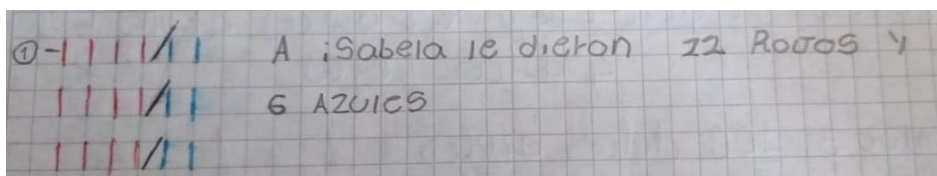 ①- A iSabela le dieron 22 Rojos y
6 AZULES